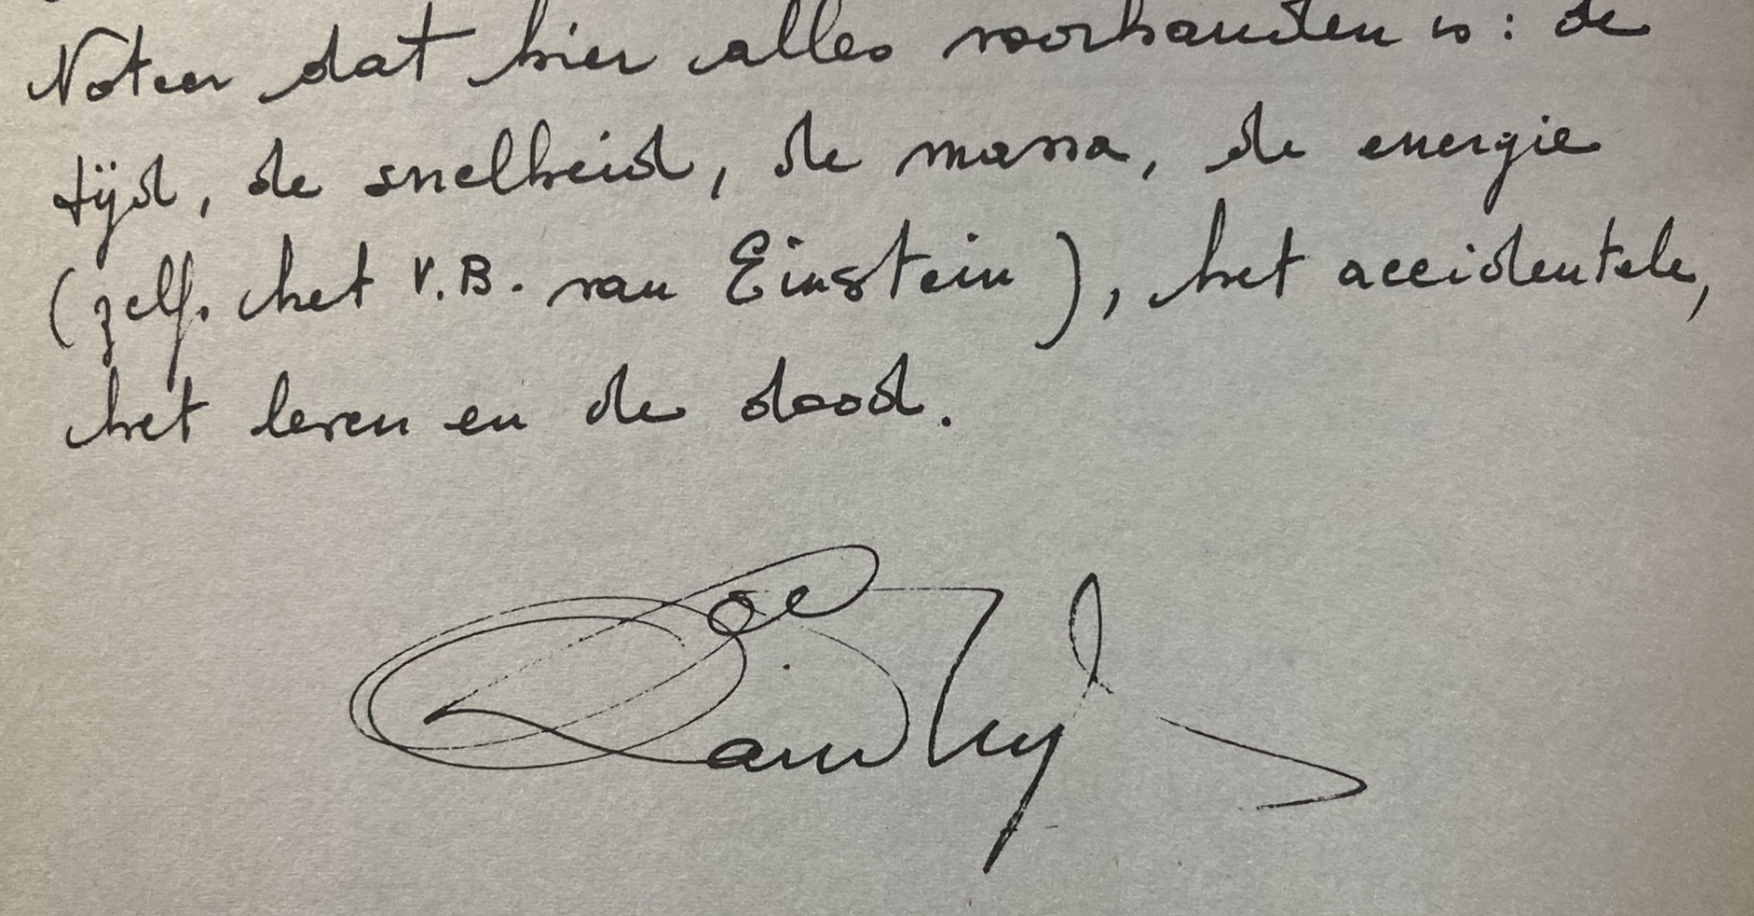 Noteer dat hier alles voorhanden is: de
tijd, de snelheid, de massa, de energie
(zelf. het V.B. van Einstein), het accidentele,
het leven en de dood.